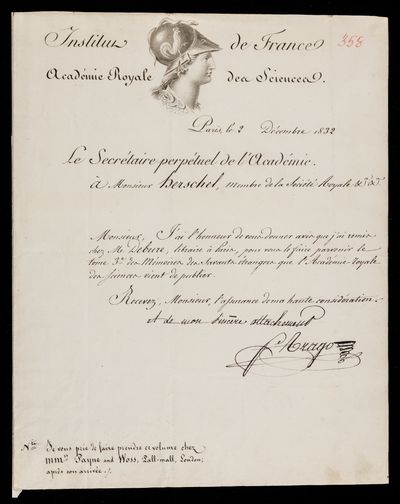 Institut de France 358
Académie Royale des Sciences.
Paris, le 2 Décembre 1832
Le Secrétaire perpétuel de l'Académie.
à Monsieur Herschel, membre de la Société Royale &a &a
Monsieur, J'ai l'honneur de vous donner avis que j'ai remis
chez Mr. Debure, libraire à Paris, pour vous le faire parvenir le
tome 3e. des Mémoires des Savants étrangers que l'Académie royale
des Sciences vient de publier.
Recevez, Monsieur, l'assurance de ma haute considération.
et de mon sincère attachement
F. Arago
Je vous prie de faire prendre ce volume chez
mmrs Payne and Woss, Pall-mall, London;
après son arrivée ./.